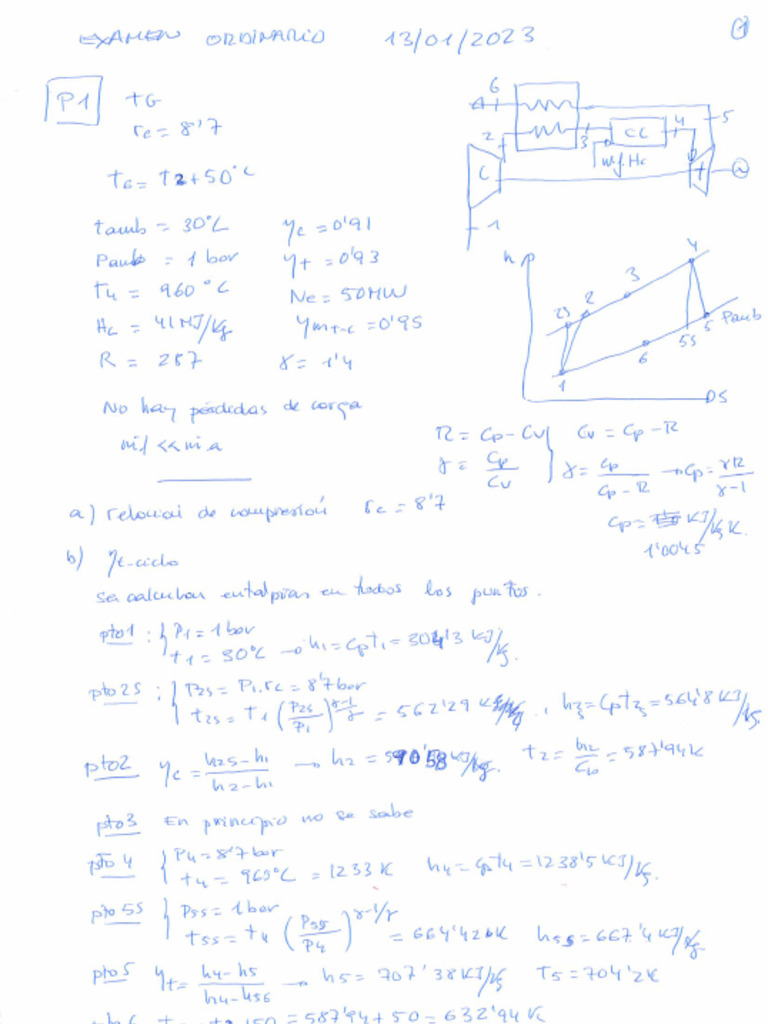 EXAMEN ORDINARIO 13/01/2023 1
P1 TG
rc = 8'7
t6 = t2 + 50°C
tamb = 30°C ηc = 0'91
Pamb = 1 bar ηt = 0'93
T4 = 960°C Ne = 50MW
Hc = 41MJ/kg ηm+-c = 0'95
R = 287 γ = 1'4
No hay pérdidas de carga
ṁf << ṁa
6
2 3 CC 4 5
C ṁf.Hc T
1
h
4
3
2S 2
5 Pamb
6 5S
1
S
R = Cp - Cv } Cv = Cp - R
γ = Cp/Cv } γ = Cp/(Cp - R) → Cp = γR/(γ-1)
Cp = KJ/kgK.
1'0045
a) relación de compresión rc = 8'7
b) ηt-ciclo
Se calculan entalpías en todos los puntos.
pto1 : { P1 = 1 bar
t1 = 30°C → h1 = Cpt1 = 304'3 KJ/kg.
pto2S : { P2S = P1.rc = 8'7 bar
t2S = T1 (P2S/P1)^(γ-1/γ) = 562'29 , h2S = Cpt2S = 564'8 KJ/kg
pto2 ηc = (h2S - h1)/(h2 - h1) → h2 = 590'58 KJ/kg. t2 = h2/Cp = 587'94K
pto3 En principio no se sabe
pto4 { P4 = 8'7 bar
t4 = 960°C = 1233 K h4 = Cpt4 = 1238'5 KJ/kg.
pto5S { P5S = 1 bar
t5S = t4 (P5S/P4)^(γ-1/γ) = 664'42 K h5S = 667'4 KJ/kg
pto5 ηt = (h4 - h5)/(h4 - h5S) → h5 = 707'38 KJ/kg T5 = 704'2K
pto6 t2+50 = 587'94 + 50 = 632'94 K